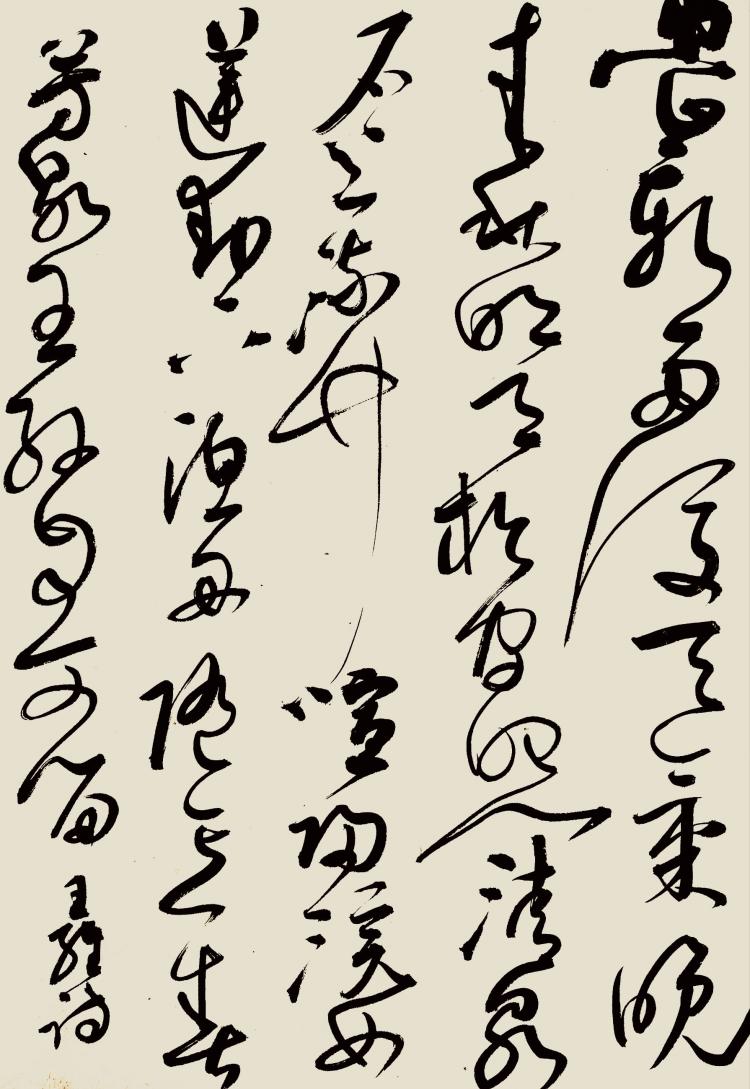 空山新雨後天氣晚
来秋明月松间照清泉
石上流竹喧歸浣女
蓮動下漁舟隨意春
芳歇王孫自可留 王維詩